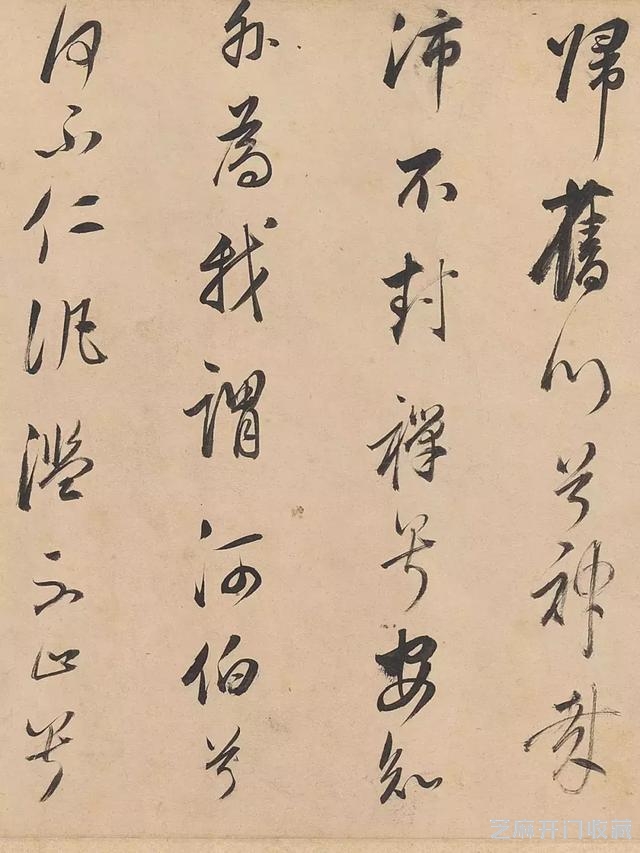 歸舊川兮神哉
沛不封禪兮安知
外為我謂河伯兮
何不仁汎濫不止兮
芝麻开门收藏